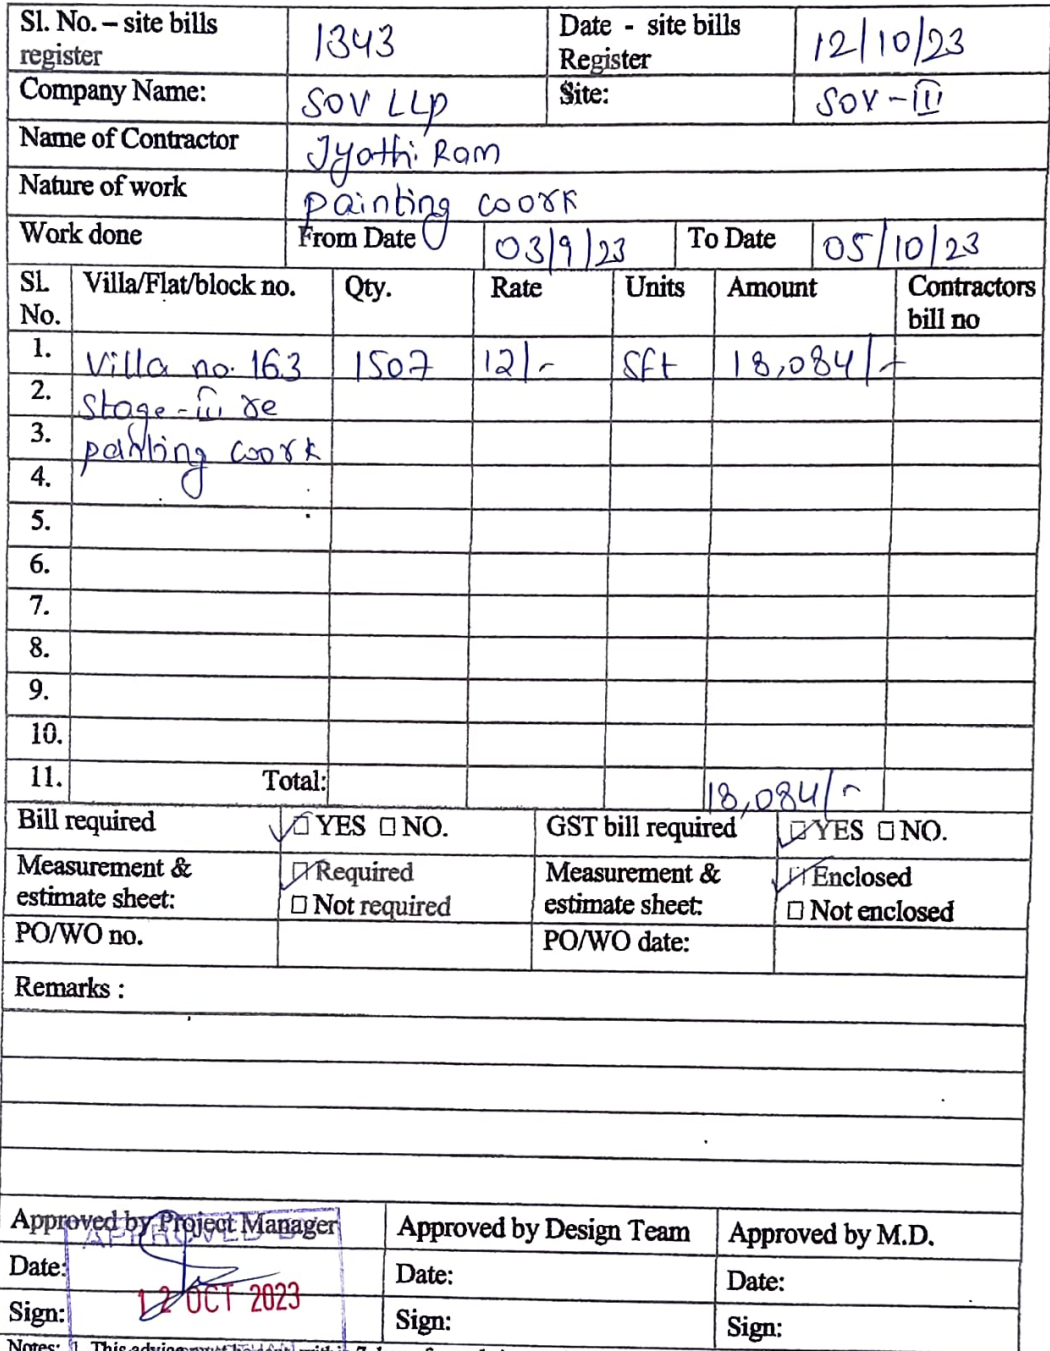 Sl. No. – site bills register 1343 Date - site bills Register 12/10/23
Company Name: SOV LLP Site: SOV-III
Name of Contractor Jyothi Ram
Nature of work painting work
Work done From Date 03/9/23 To Date 05/10/23
Sl. No. Villa/Flat/block no. Qty. Rate Units Amount Contractors bill no
1. Villa no. 163 1507 12/- Sft 18,084/-
2. Stage-III re
3. painting work
4.
5.
6.
7.
8.
9.
10.
11. Total: 18,084/-
Bill required ☑ YES ☐ NO. GST bill required ☑ YES ☐ NO.
Measurement & estimate sheet: ☑ Required ☐ Not required Measurement & estimate sheet: ☑ Enclosed ☐ Not enclosed
PO/WO no. PO/WO date:
Remarks :
Approved by Project Manager Approved by Design Team Approved by M.D.
APPROVED BY
Date: Date: Date:
12 OCT 2023
Sign: Sign: Sign:
Notes: 1. This advice must